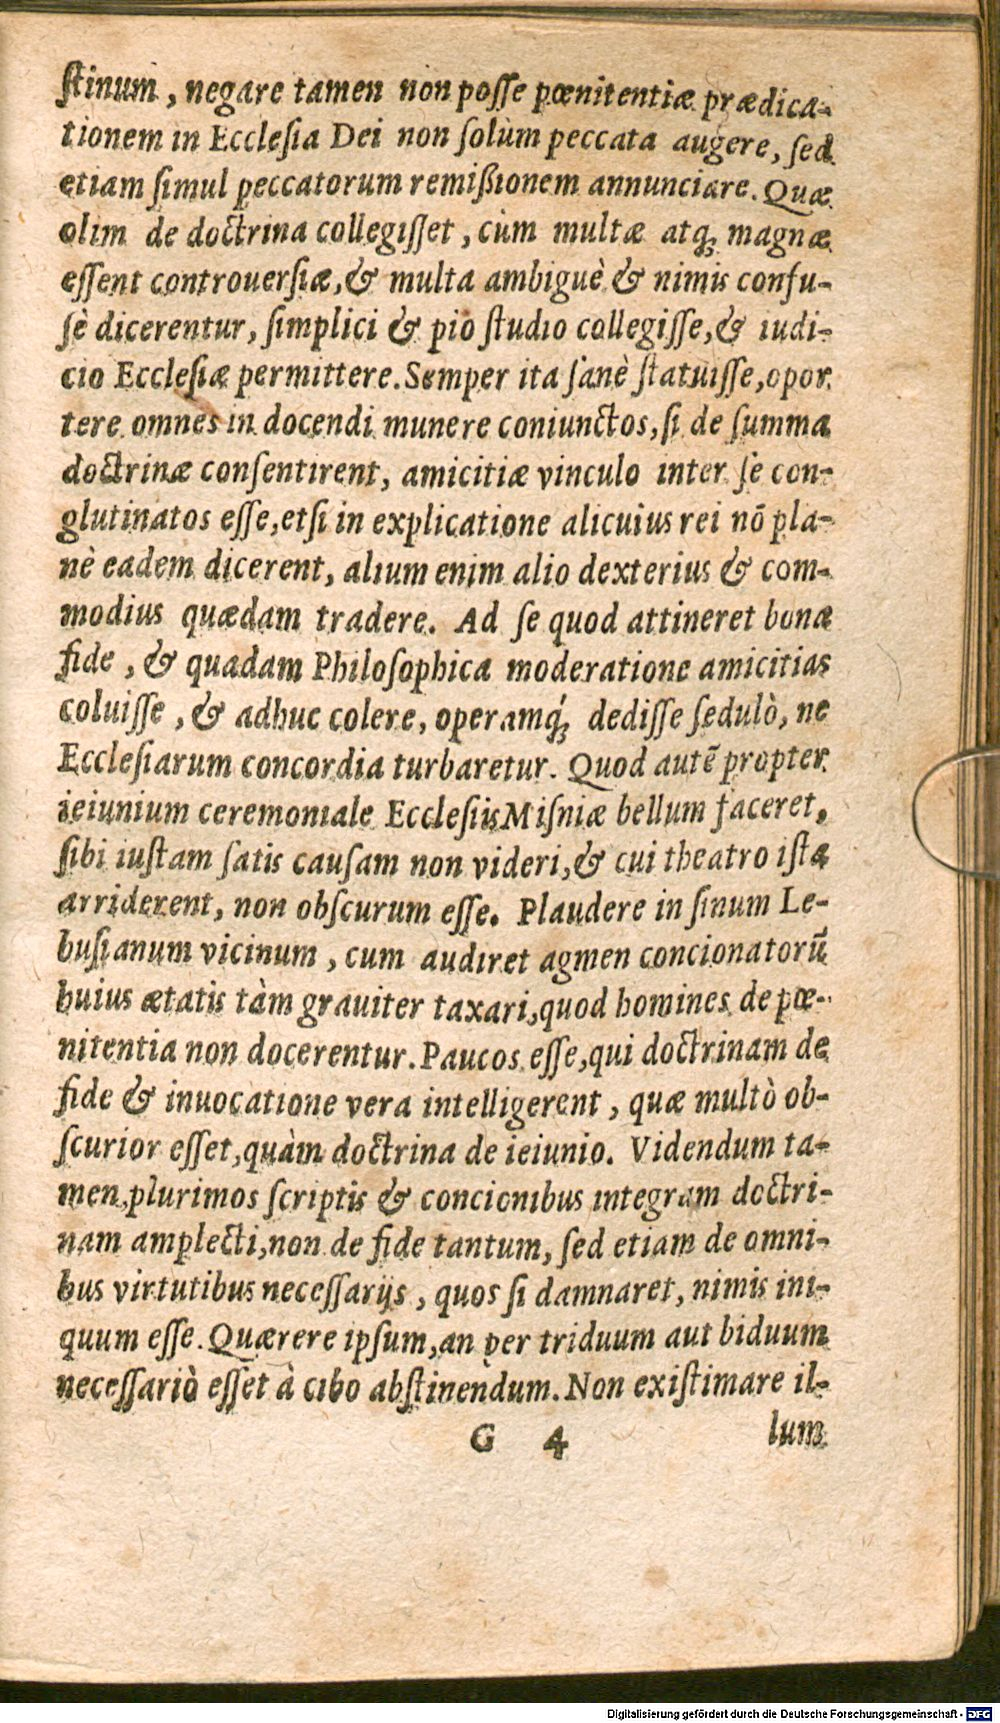 ſtinum, negare tamen non poſſe pœnitentiæ prædica-
tionem in Eccleſia Dei non ſolùm peccata augere, ſed
etiam ſimul peccatorum remißionem annunciare. Quæ
olim de doctrina collegiſſet, cùm multæ atq; magnæ
eſſent controuerſiæ, & multa ambiguè & nimis confu-
ſè dicerentur, ſimplici & pio ſtudio collegiſſe, & iudi-
cio Eccleſiæ permittere. Semper ita ſanè ſtatuiſſe, opor
tere omnes in docendi munere coniunctos, ſi de ſumma
doctrinæ conſentirent, amicitiæ vinculo inter ſe con-
glutinatos eſſe, etſi in explicatione alicuius rei nō pla-
nè eadem dicerent, alium enim alio dexterius & com-
modius quædam tradere. Ad ſe quod attineret bona
fide, & quadam Philoſophica moderatione amicitias
coluiſſe, & adhuc colere, operamq́; dediſſe ſedulò, ne
Eccleſiarum concordia turbaretur. Quod autē propter
ieiunium ceremoniale Eccleſiis Miſniæ bellum faceret,
ſibi iuſtam ſatis cauſam non videri, & cui theatro iſta
arriderent, non obſcurum eſſe. Plaudere in ſinum Le-
buſianum vicinum, cum audiret agmen concionatorū
huius ætatis tàm grauiter taxari, quod homines de pœ-
nitentia non docerentur. Paucos eſſe, qui doctrinam de
fide & inuocatione vera intelligerent, quæ multò ob-
ſcurior eſſet, quàm doctrina de ieiunio. Videndum ta-
men, plurimos ſcriptis & concionibus integram doctri-
nam amplecti, non de fide tantum, ſed etiam de omni-
bus virtutibus neceſſarijs, quos ſi damnaret, nimis ini-
quum eſſe. Quærere ipſum, an per triduum aut biduum
neceſſariò eſſet à cibo abſtinendum. Non exiſtimare il-
G 4 lum
Digitalisierung gefördert durch die Deutsche Forschungsgemeinschaft - DFG